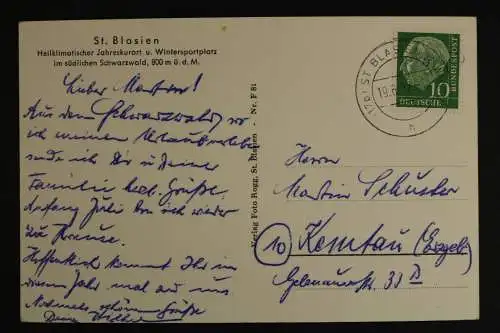 St. Blasien
Heilklimatischer Jahreskurort u. Wintersportplatz
im südlichen Schwarzwald, 800 m ü. d. M.
Lieber Martin!
Aus dem Schwarzwald wo
ich meinen Urlaub verlebe
sende ich Dir u Deiner
Familie herzl. Grüße.
Anfang Juli bin ich wieder
zu Hause.
Hoffentlich kommt Ihr in
diesem Jahr mal auf uns
Nochmals schöne Grüße
Verlag Foto Rogg, St. Blasien - Nr. F 81
(17b) ST BLASIEN
19.6
h
10
DEUTSCHE
BUNDESPOST
Herrn
Martin Schuster
10 Kemtau (Erzgeb.)
Gelenauerstr. 33 B